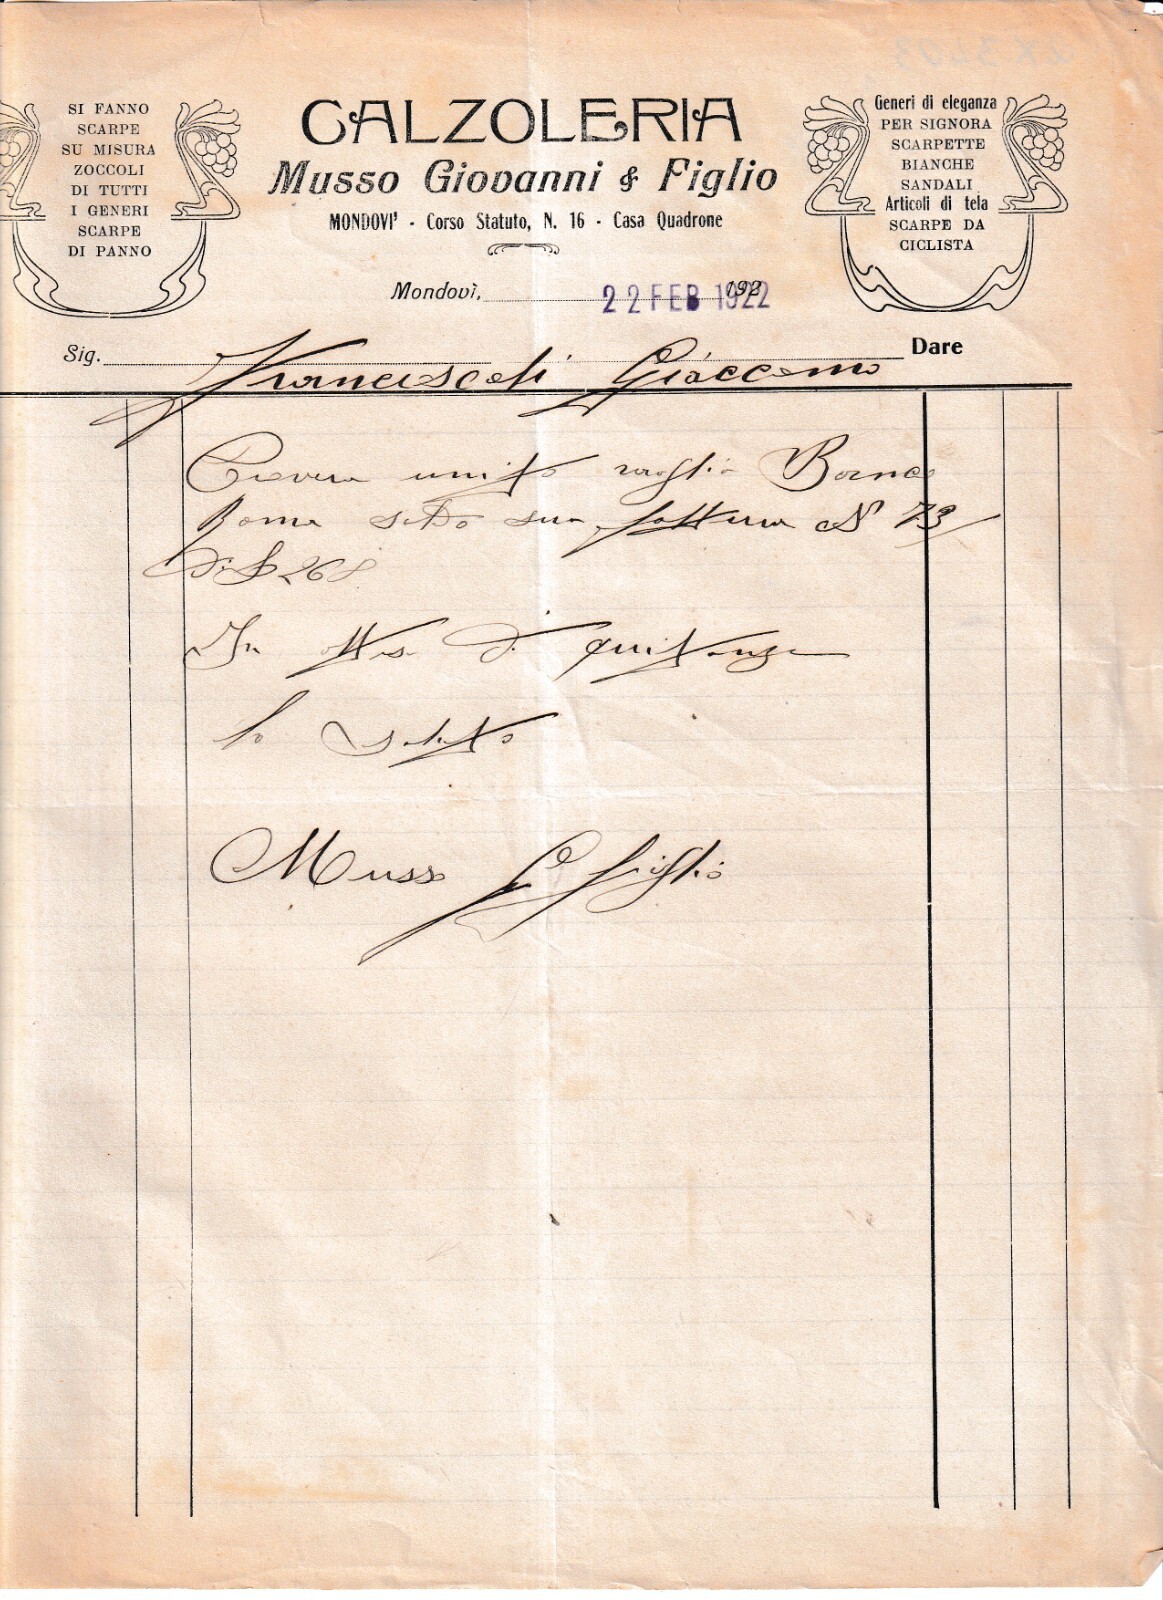 SI FANNO
SCARPE
SU MISURA
ZOCCOLI
DI TUTTI
I GENERI
SCARPE
DI PANNO
CALZOLERIA
Musso Giovanni & Figlio
MONDOVI' - Corso Statuto, N. 16 - Casa Quadrone
Generi di eleganza
PER SIGNORA
SCARPETTE
BIANCHE
SANDALI
Articoli di tela
SCARPE DA
CICLISTA
Mondovì, 192
22 FEB 1922
Sig. Giaccomo Dare
unito vaglia Banco
Roma saldo sua fattura N 73
Di £ 268
In attesa di quitanza
lo saluto
Musso G figlio